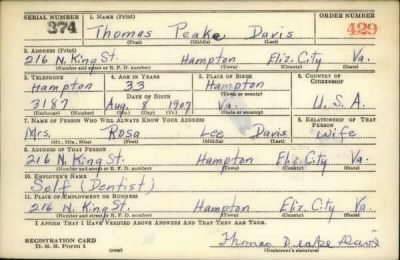 SERIAL NUMBER 1. NAME (Print) ORDER NUMBER
374 Thomas Peake Davis 429
(First) (Middle) (Last)
2. ADDRESS (Print)
216 N. King St. Hampton Eliz. City Va.
(Number and street or R. F. D. number) (Town) (County) (State)
3. TELEPHONE 4. AGE IN YEARS 5. PLACE OF BIRTH 6. COUNTRY OF CITIZENSHIP
Hampton 33 Hampton
DATE OF BIRTH (Town or county)
3187 Aug. 8 1907 Va. U.S.A.
(Exchange) (Number) (Mo.) (Day) (Yr.) (State or country)
7. NAME OF PERSON WHO WILL ALWAYS KNOW YOUR ADDRESS 8. RELATIONSHIP OF THAT PERSON
Mrs. Rosa Lee Davis Wife
(Mr., Mrs., Miss) (First) (Middle) (Last)
9. ADDRESS OF THAT PERSON
216 N. King St. Hampton Eliz. City Va.
(Number and street or R. F. D. number) (Town) (County) (State)
10. EMPLOYER'S NAME
Self (Dentist)
11. PLACE OF EMPLOYMENT OR BUSINESS
216 N. King St. Hampton Eliz. City Va.
(Number and street or R. F. D. number) (Town) (County) (State)
I AFFIRM THAT I HAVE VERIFIED ABOVE ANSWERS AND THAT THEY ARE TRUE.
REGISTRATION CARD
D. S. S. Form 1 Thomas Peake Davis
(Registrant's signature)